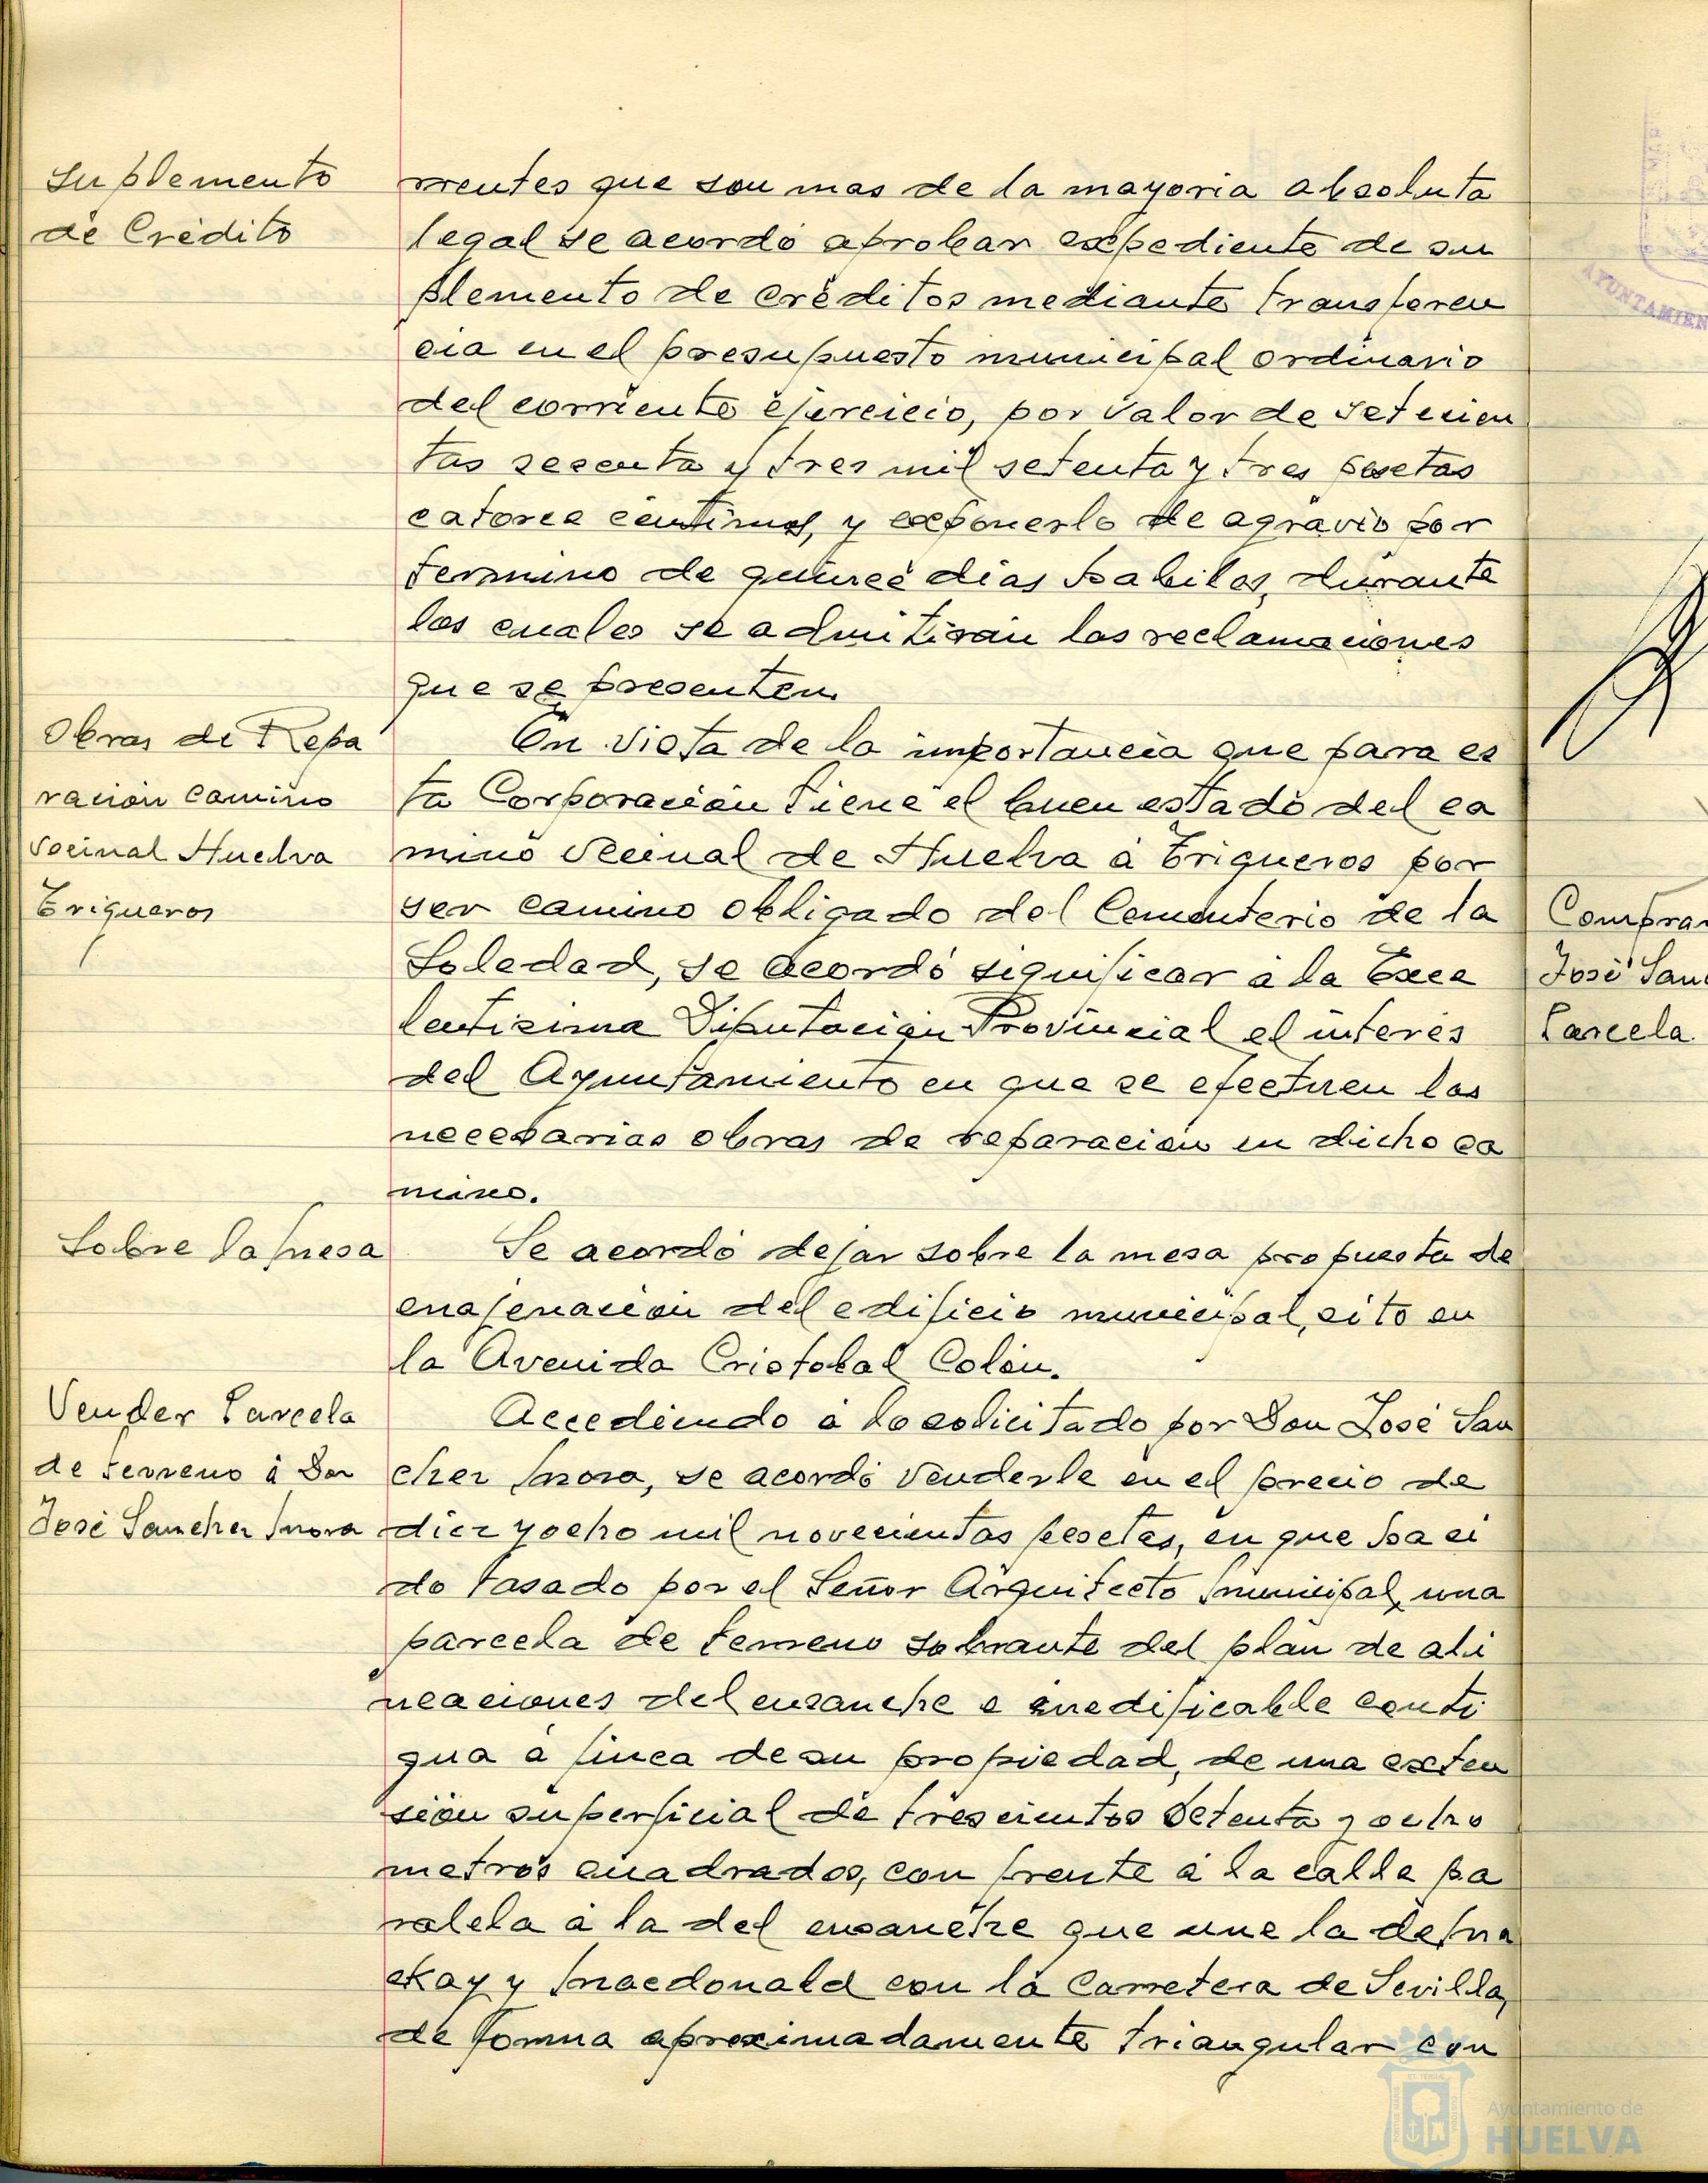 Suplemento
de Crédito
rrentes que son mas de la mayoria absoluta
legal se acordó aprobar expediente de su
plemento de créditos mediante transferen
cia en el presupuesto municipal ordinario
del corriente ejercicio, por valor de setecien
tas sesenta y tres mil setenta y tres pesetas
catorce centimos, y exponerlo de agravio por
termino de quince dias habiles, durante
los cuales se admitiran las reclamaciones
que se presenten.
Obras de Repa
ración camino
vecinal Huelva
Trigueros
En vista de la importancia que para es
ta Corporación tiene el buen estado del ca
mino vecinal de Huelva á Trigueros por
ser camino obligado del Cementerio de la
Soledad, se acordó significar á la Exce
lentisima Diputación Provincial el interés
del Ayuntamiento en que se efectuen las
necesarias obras de reparación en dicho ca
mino.
Sobre la mesa
Se acordó dejar sobre la mesa propuesta de
enajenación del edificio municipal, sito en
la Avenida Cristobal Colón.
Vender Parcela
de terreno á Don
José Sanchez Mora
Accediendo a lo solicitado por Don José San
chez Mora, se acordó venderle en el precio de
diez y ocho mil novecientas pesetas, en que ha si
do tasado por el Señor Arquitecto Municipal, una
parcela de terreno sobrante del plan de ali
neaciones del ensanche e inedificable conti
gua á finca de su propiedad, de una exten
sión superficial de trescientos setenta y ocho
metros cuadrados, con frente á la calle pa
ralela á la del ensanche que une la de Ma
ckay y Macdonald con la Carretera de Sevilla,
de forma aproximadamente triangular con
Comprar
José San
Parcela
AYUNTAMIEN
Ayuntamiento de
HUELVA